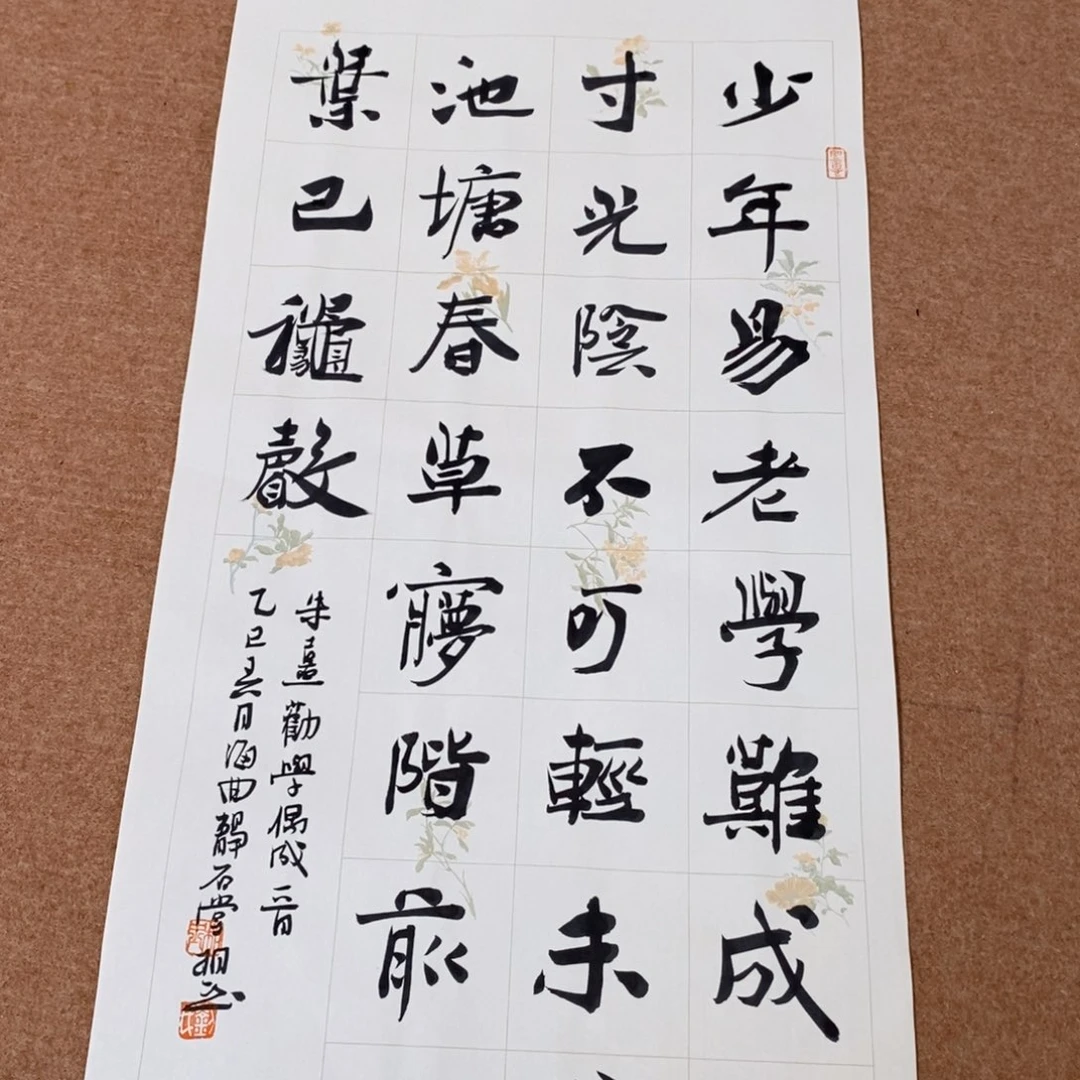 少年易老學難成
寸光陰不可輕未
池塘春草㝱階前
葉已龝聲
朱熹勸學偶成一首
乙巳月海曲靜石堂